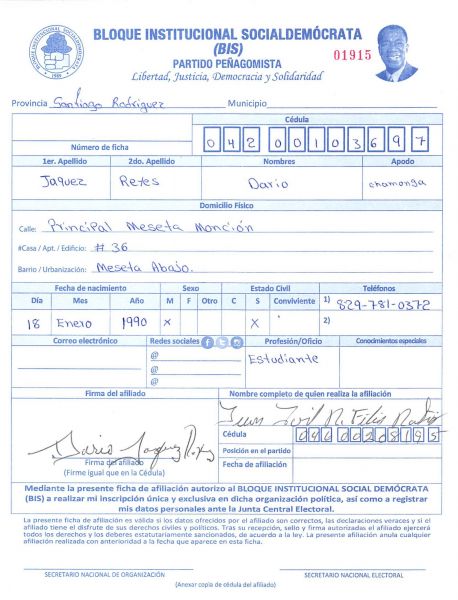 BLOQUE INSTITUCIONAL SOCIALDEMÓCRATA
(BIS)
PARTIDO PEÑAGOMISTA
Libertad, Justicia, Democracia y Solidaridad
01915
Provincia Santiago Rodríguez Municipio
Cédula
Número de ficha 04200103697
1er. Apellido 2do. Apellido Nombres Apodo
Jaquez Reyes Dario chamonga
Domicilio Físico
Calle: Principal Meseta Monción
#Casa / Apt. / Edificio: # 36
Barrio / Urbanización: Meseta Abajo.
Fecha de nacimiento Sexo Estado Civil Teléfonos
Día Mes Año M F Otro C S Conviviente 1) 829-781-0372
18 Enero 1990 X X 2)
Correo electrónico Redes sociales Profesión/Oficio Conocimientos especiales
@ Estudiante
@
@
Firma del afiliado Nombre completo de quien realiza la afiliación
Cédula 04600028195
Dario Jaquez Posición en el partido
Firma del afiliado Fecha de afiliación
(Firme igual que en la Cédula)
Mediante la presente ficha de afiliación autorizo al BLOQUE INSTITUCIONAL SOCIAL DEMÓCRATA
(BIS) a realizar mi inscripción única y exclusiva en dicha organización política, así como a registrar
mis datos personales ante la Junta Central Electoral.
La presente ficha de afiliación es válida si los datos ofrecidos por el afiliado son correctos, las declaraciones veraces y si el
afiliado tiene el disfrute de sus derechos civiles y políticos. Tras su recepción, sello y firma autorizadas el afiliado ejercerá
todos los derechos y los deberes estatutariamente sancionados, de acuerdo a la ley. La presente afiliación anula cualquier
afiliación realizada con anterioridad a la fecha que aparece en esta ficha.
SECRETARIO NACIONAL DE ORGANIZACIÓN SECRETARIO NACIONAL ELECTORAL
(Anexar copia de cédula del afiliado)